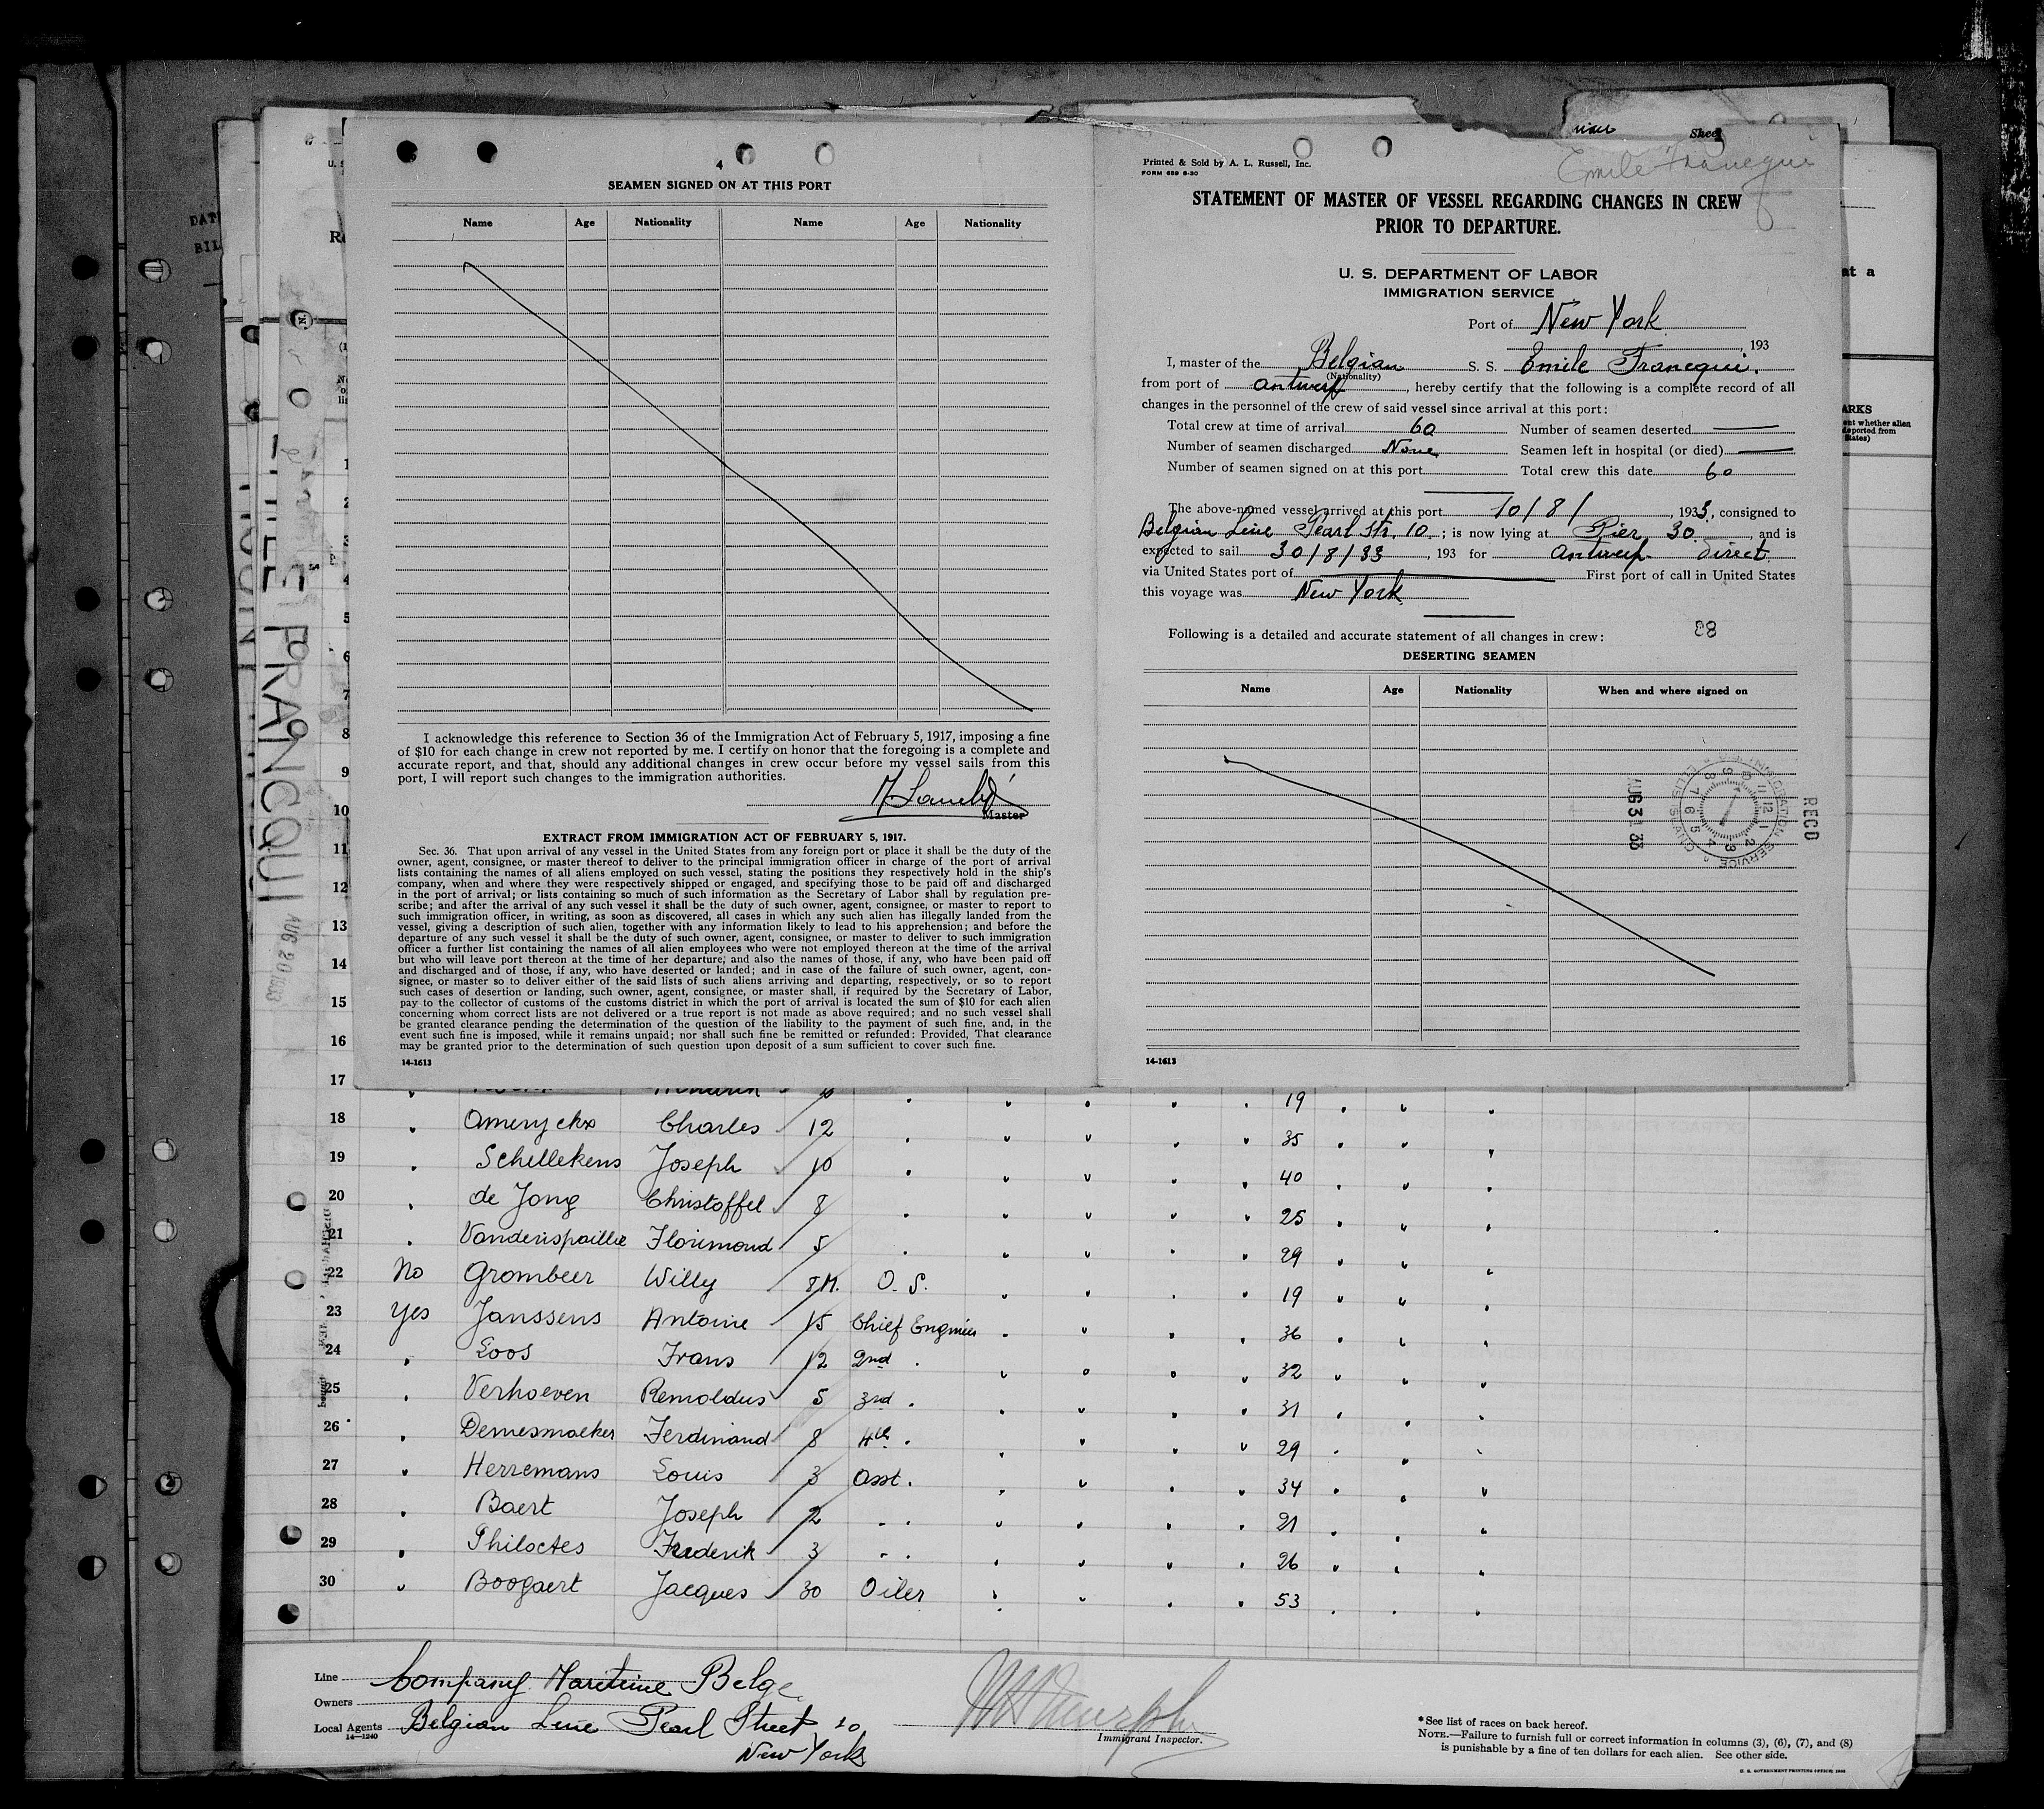 4
SEAMEN SIGNED ON AT THIS PORT
Name Age Nationality Name Age Nationality
I acknowledge this reference to Section 36 of the Immigration Act of February 5, 1917, imposing a fine
of $10 for each change in crew not reported by me. I certify on honor that the foregoing is a complete and
accurate report, and that, should any additional changes in crew occur before my vessel sails from this
port, I will report such changes to the immigration authorities.
Master
EXTRACT FROM IMMIGRATION ACT OF FEBRUARY 5, 1917.
Sec. 36. That upon arrival of any vessel in the United States from any foreign port or place it shall be the duty of the
owner, agent, consignee, or master thereof to deliver to the principal immigration officer in charge of the port of arrival
lists containing the names of all aliens employed on such vessel, stating the positions they respectively hold in the ship's
company, when and where they were respectively shipped or engaged, and specifying those to be paid off and discharged
in the port of arrival; or lists containing so much of such information as the Secretary of Labor shall by regulation pre-
scribe; and after the arrival of any such vessel it shall be the duty of such owner, agent, consignee, or master to report to
such immigration officer, in writing, as soon as discovered, all cases in which any such alien has illegally landed from the
vessel, giving a description of such alien, together with any information likely to lead to his apprehension; and before the
departure of any such vessel it shall be the duty of such owner, agent, consignee, or master to deliver to such immigration
officer a further list containing the names of all alien employees who were not employed thereon at the time of the arrival
but who will leave port thereon at the time of her departure, and also the names of those, if any, who have been paid off
and discharged and of those, if any, who have deserted or landed; and in case of the failure of such owner, agent, con-
signee, or master so to deliver either of the said lists of such aliens arriving and departing, respectively, or so to report
such cases of desertion or landing, such owner, agent, consignee, or master shall, if required by the Secretary of Labor,
pay to the collector of customs of the customs district in which the port of arrival is located the sum of $10 for each alien
concerning whom correct lists are not delivered or a true report is not made as above required; and no such vessel shall
be granted clearance pending the determination of the question of the liability to the payment of such fine, and, in the
event such fine is imposed, while it remains unpaid; nor shall such fine be remitted or refunded: Provided, That clearance
may be granted prior to the determination of such question upon deposit of a sum sufficient to cover such fine.
14-1613
Printed & Sold by A. L. Russell, Inc.
FORM 689 6-30
Emile Francqui
STATEMENT OF MASTER OF VESSEL REGARDING CHANGES IN CREW
PRIOR TO DEPARTURE.
U. S. DEPARTMENT OF LABOR
IMMIGRATION SERVICE
Port of New York
, 193
I, master of the Belgian S. S. Emile Francqui.
(Nationality)
from port of Antwerp, hereby certify that the following is a complete record of all
changes in the personnel of the crew of said vessel since arrival at this port:
Total crew at time of arrival 60 Number of seamen deserted
Number of seamen discharged None Seamen left in hospital (or died)
Number of seamen signed on at this port Total crew this date 60
The above-named vessel arrived at this port 10/8/, 1933, consigned to
Belgian Line Pearl Str. 10.; is now lying at Pier 30, and is
expected to sail 30/8/33, 193 for Antwerp direct
via United States port of First port of call in United States
this voyage was New York
Following is a detailed and accurate statement of all changes in crew: 88
DESERTING SEAMEN
Name Age Nationality When and where signed on
RECD
IMMIGRATION SERVICE
ELLIS ISLAND
AUG 31 33
14-1613
EMILE FRANCQUI
AUG 20 1933
17 19
18 Amerijckx Charles 12 35
19 Schellekens Joseph 10 40
20 de Jong Christoffel 8 25
21 Vanderispaillie Florimond 5 29
22 No Grombeer Willy 8M. O. S. 19
23 Yes Janssens Antoine 15 Chief Engineer 36
24 Loos Frans 12 2nd 32
25 Verhoeven Remoldus 5 3rd 31
26 Demesmaeker Ferdinand 8 4th 29
27 Herremans Louis 3 Asst. 34
28 Baert Joseph 2 21
29 Philoctes Frederik 3 26
30 Boogaert Jacques 30 Oiler 53
Line Company Maritime Belge
Owners
Local Agents Belgian Line Pearl Street 10
14-1240
New York
Immigrant Inspector.
*See list of races on back hereof.
NOTE.—Failure to furnish full or correct information in columns (3), (6), (7), and (8)
is punishable by a fine of ten dollars for each alien. See other side.
U. S. GOVERNMENT PRINTING OFFICE: